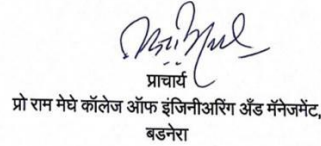 प्राचार्य
प्रो राम मेघे कॉलेज ऑफ इंजिनीअरिंग अँड मॅनेजमेंट,
बडनेरा